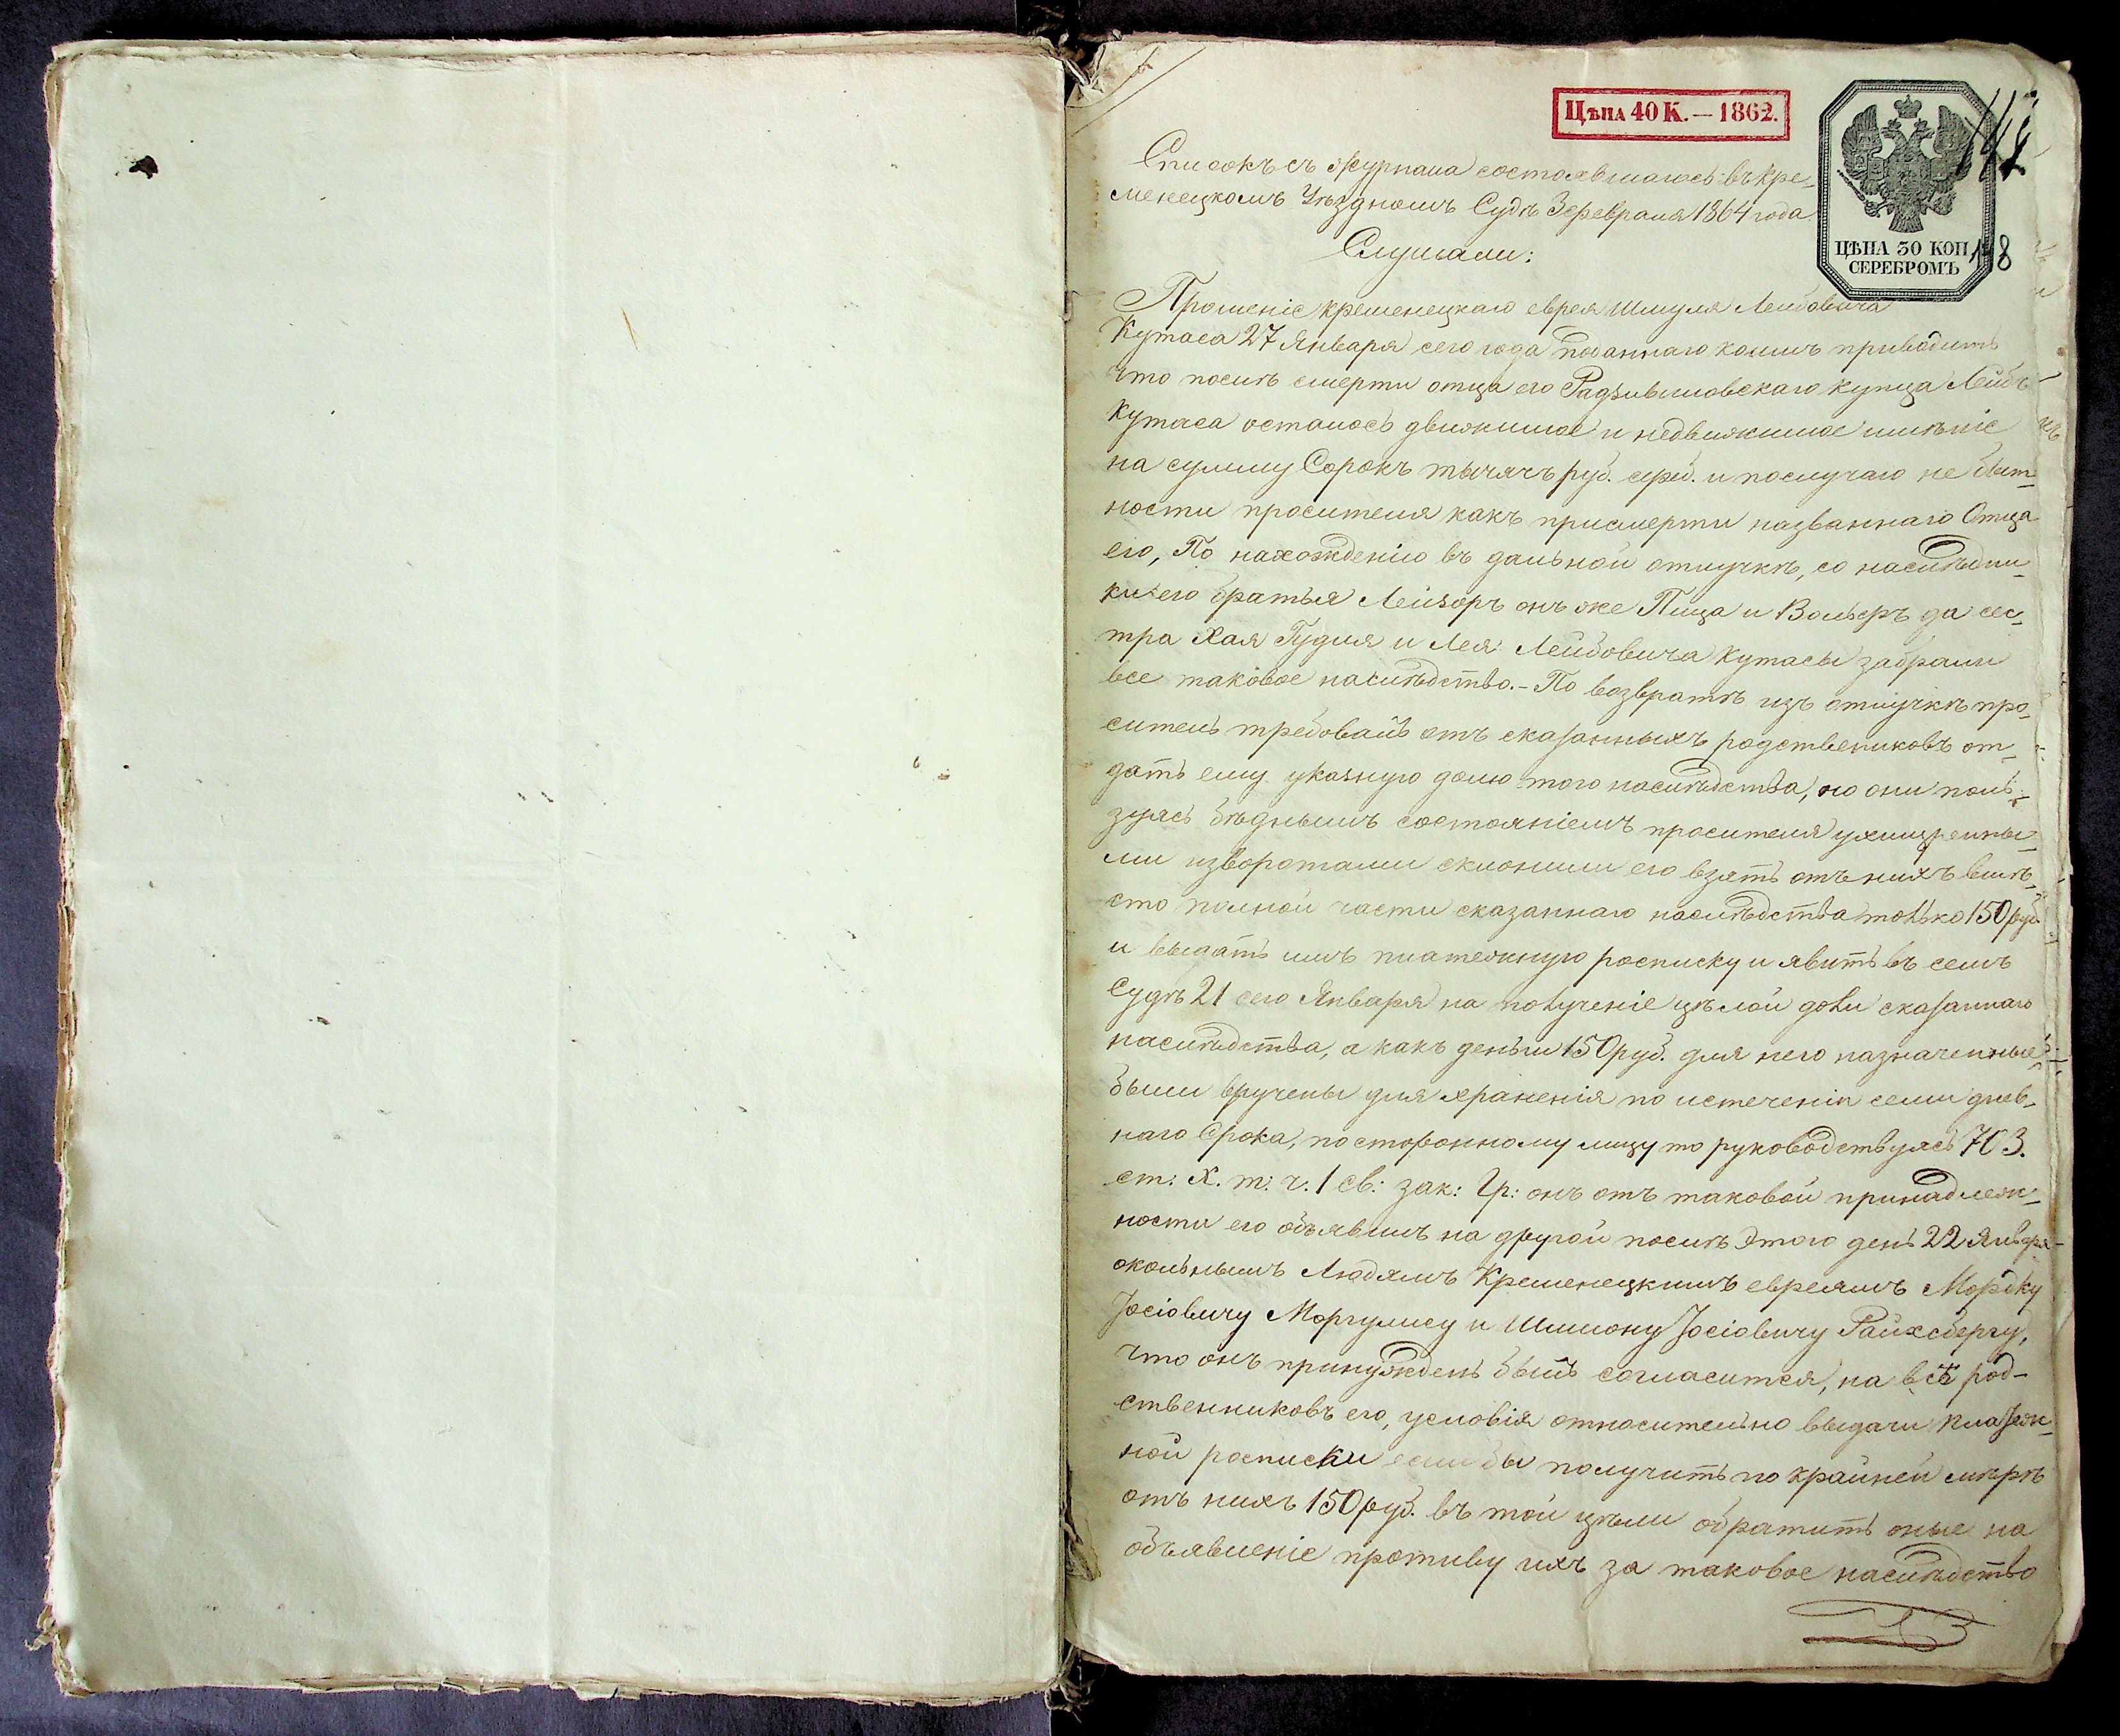 Цѣна 40 К. — 1862.
ЦѢНА 30 КОП.
СЕРЕБРОМЪ
148
Списокъ съ журнала состоявшагося въ Кре-
менецкомъ Уѣздномъ Судѣ 3 февраля 1864 года.
Слушали:
Прошеніе кременецкаго еврея Шмуля Лейбовича
Кутаса 27 Января сего года поданнаго коимъ приводитъ
что послѣ смерти отца его Радзивиловскаго купца Лейбы
Кутаса осталось движимое и недвижимое имѣніе
на сумму Сорокъ тысячъ руб. сереб. и послучаю не быт-
ности просителя какъ присмерти названнаго Отца
его, По нахожденію въ дальной отлучкѣ, со наслѣдни-
ки его братья Лейзоръ онъ же Пица и Вольфъ да сес-
тра Хая Гудля и Лея Лейбовича Кутасы забрали
все таковое наслѣдство. - По возвратѣ изъ отлучкѣ про-
ситель требовалъ отъ сказанныхъ родствениковъ от-
дать ему указную долю того наслѣдства, но они поль-
зуясь бѣднымъ состояніемъ просителя ухищренны-
ми изворотами склонили его взять отъ нихъ вмѣ-
сто полной части сказаннаго наслѣдства только 150 руб.
и выдать имъ платежную росписку и явить въ семъ
Судѣ 21 сего Января на полученіе цѣлой доли сказаннаго
наслѣдства, а какъ деньги 150 руб. для него назначенные
были вручены для храненія по истеченіи семи днев-
наго Срока, постороннему лицу то руководствуясь 703.
ст: X. т: ч. 1 св: зак: Гр: онъ отъ таковой принадлеж-
ности его объявилъ на другой послѣ Этого день 22 Января
окольнымъ Людямъ Кременецкимъ евреямъ Мордку
Іосіовичу Моргулису и Шимону Іосіовичу Райхсбергу,
что онъ принужденъ былъ согласится, на всѣ род-
ственниковъ его, условія относительно выдачи платеж-
ной росписки если бы получить по крайней мѣрѣ
отъ нихъ 150 руб. въ той цѣли обратить оные на
объявленіе противу ихъ за таковое наслѣдство